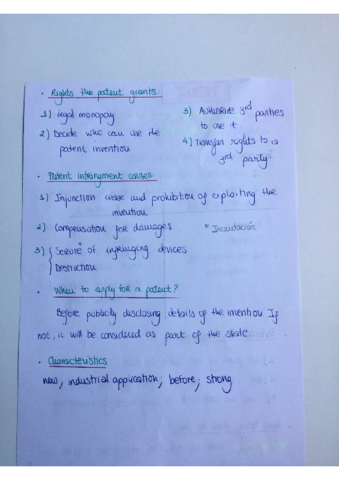 • Rights the patent grants:
1) Legal monopoly
2) Decide who can use the patent invention
3) Authorize 3rd parties to use it
4) Transfer rights to a 3rd party
• Patent infringment causes:
1) Injunction cease and prohibition of exploiting the invention
2) Compensation for damages
* Incautación
3) { Seizure* of infringing devices
Destruction
• When to apply for a patent?
Before publicly disclosing details of the invention If
not, it will be considered as part of the state
• Characteristics
new, industrial application; before; strong